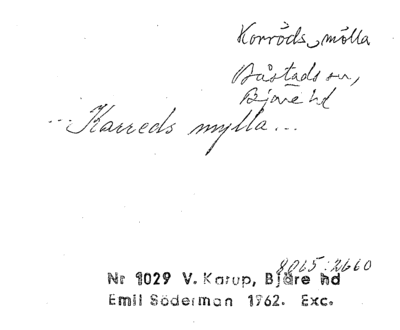 Korröds mölla
Båstads sn,
Bjäre hd
... Karreds mylla ...
8065:2660
Nr 1029 V. Karup, Bjäre hd
Emil Söderman 1962. Exc.